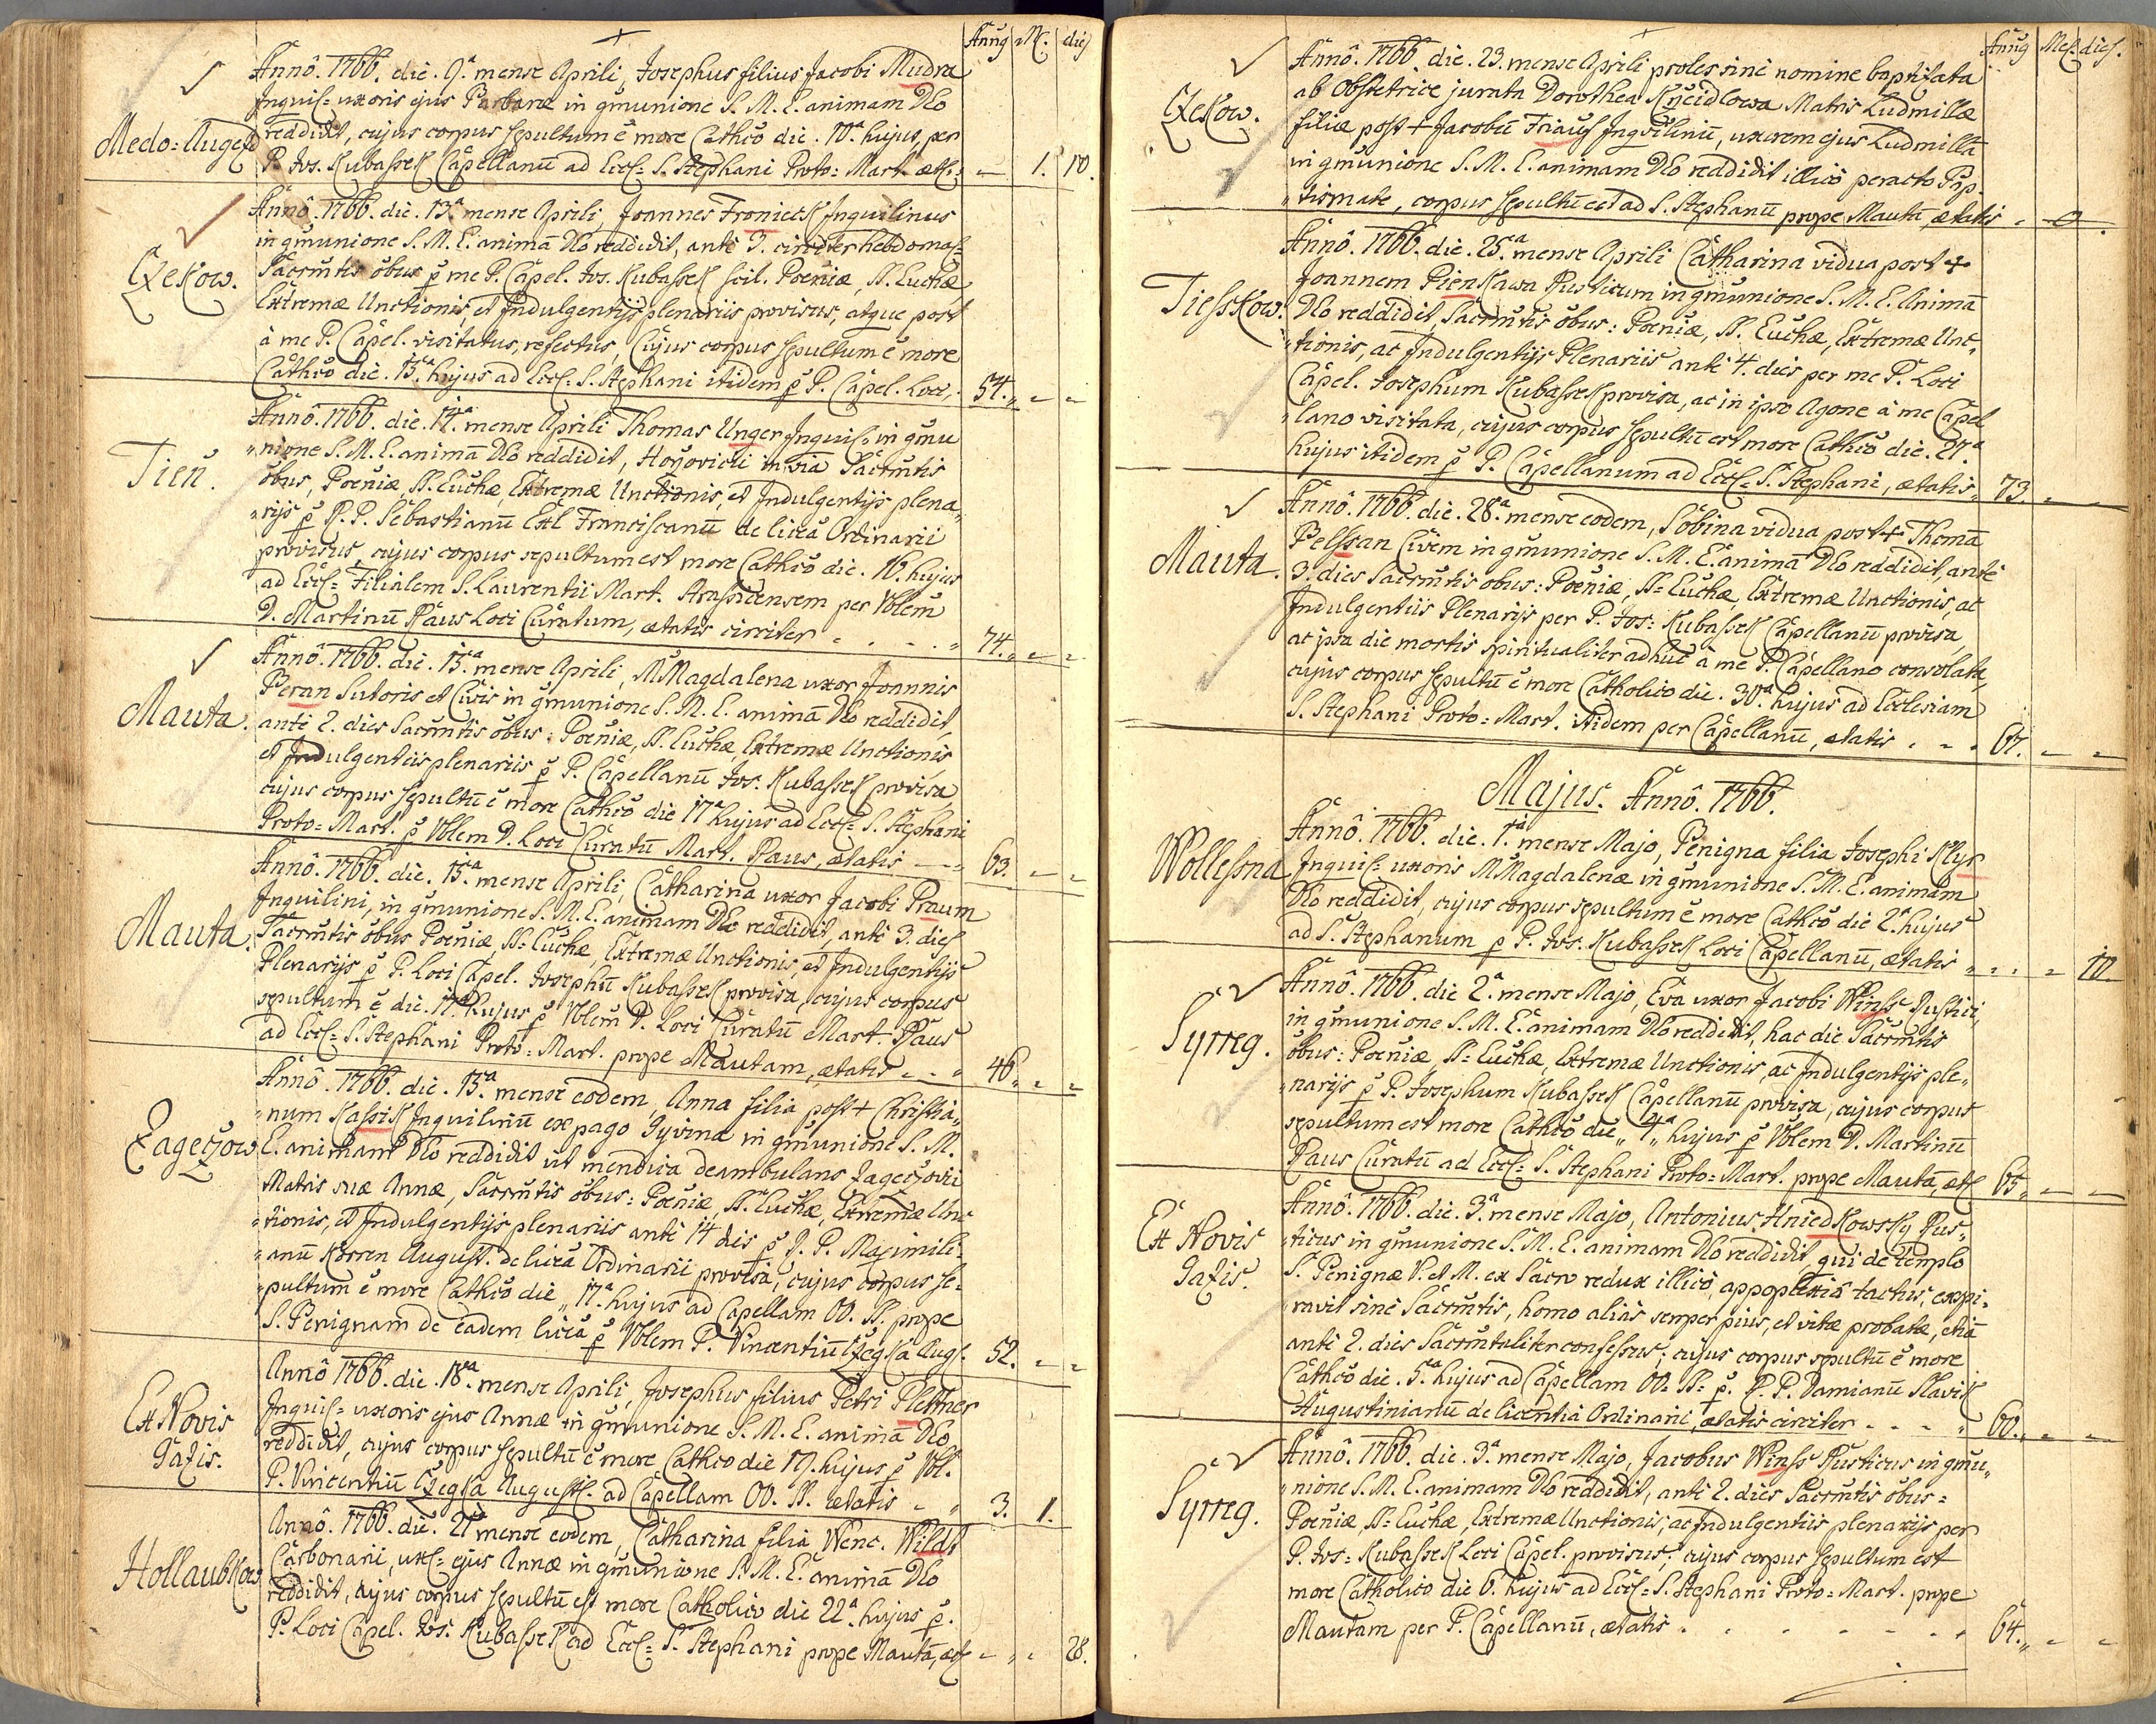 Annũs M. dies
Annô. 1766. die. 9.ª mense Aprili, Josephus filius Jacobi Mudra
Inquil= uxoris ejus Barbaræ in g̃munione S. M. E. animam Dẽo
Medo=Augezd reddidit, cujus corpus sepultum ẽ more Cathcõ die. 10.ª hujus, per
P. Jos. Kubassek Capellanũ ad Eccl= S. Stephani Proto= Mart. æt. 1. 10.
Annô. 1766. die. 13.ª mense Aprili, Joannes Froniek Inquilinus
in g̃munione S. M. E. animã Dẽo reddidit, ante 3. circiter hebdomas
Czekow. Sacrm̃tis õbus p̃ me P. Capel. Jos. Kubassek scil. Pœniæ, SS. Euchæ,
Extremæ Unctionis, et Indulgentijs plenariis provisus, atque post
à me P. Capel. visitatus, refectus, Cujus corpus sepultum ẽ more
Cathcõ die. 15.ª hujus ad Eccl= S. Stephani itidem p̃ P. Capel. Loci, 54.
Annô. 1766. die. 14.ª mense Aprili Thomas Unger Inquil= in g̃mu
"nione S. M. E. animã Dẽo reddidit, Horovicii in via Sacrm̃tis
Tien. õbus, Pœniæ, SS. Euchæ, Extremæ Unctionis, et Indulgentijs plena"
"rijs p̃ R. P. Sebastianũ Franciscanũ de licẽa Ordinarii
provisus, cujus corpus sepultum est more Cathcõ die. 16. hujus
ad Eccl= Filialem S. Laurentii Mart. per Vblem
D. Martinũ Paus Loci Curatum, ætatis circiter 74.
Annô. 1766. die. 15.ª mense Aprili, M Magdalena uxor Joannis
Peran Sutoris et Civis in g̃munione S. M. E. animã Dẽo reddidit,
Mauta. ante 2. dies Sacrm̃tis õbus: Pœniæ, SS. Euchæ, Extremæ Unctionis,
et Indulgentiis plenariis p̃ P. Capellanũ Jos. Kubassek provisa,
cujus corpus sepultũ ẽ more Cathcõ die 17.ª hujus ad Eccl= S. Stephani
Proto= Mart. p̃ Vblem D. Loci Curatũ Mart. Paus, ætatis 63.
Annô. 1766. die. 15.ª mense Aprili, Catharina uxor Jacobi Praum
Inquilini, in g̃munione S. M. E. animam Dẽo reddidit, ante 3. dies
Mauta. Sacrm̃tis õbus Pœniæ, SS= Euchæ, Extremæ Unctionis, et Indulgentijs
Plenarijs p̃ P. Loci Capel. Josephũ Kubassek provisa, cujus corpus
sepultum ẽ die. 17.ª hujus p̃ Vblem D. Loci Curatũ Mart. Paus
ad Eccl= S. Stephani Proto= Mart. prope Mautam, ætatis 46.
Annô. 1766. die. 15.ª mense eodem, Anna filia post + Christia"
"num Kassik Inquilinũ ex pago Gyvina in g̃munione S. M.
Zageczow E. animam Dẽo reddidit ut mendica deambulans Zageczovii
Matris suæ Annæ, Sacrm̃tis õbus: Pœniæ, SS. Euchæ, Extremæ Unc-
"tionis, et Indulgentijs plenariis ante 14 dies p̃ R. P. Maximili-
"anũ Korren August. de licẽa Ordinarii provisa, cujus corpus se-
"pultum ẽ more Cathcõ die "17.ª hujus ad Capellam OO. SS. prope
S. Benignam de eadem licẽa p̃ Vblem P. Vincentiũ Czegka Aug. 52.
Annô 1766. die. 18.ª mense Aprili, Josephus filius Petri Plettner
Ex Novis Inquil= uxoris ejus Annæ in g̃munione S. M. E. animã Dẽo
Gazis. reddidit, cujus corpus sepultũ ẽ more Cathcõ die 19. hujus p̃ Vbl.
P. Vincentiũ Czegka August. ad Capellam OO. SS. ætatis 3. 1.
Annô. 1766. die. 21.ª mense eodem, Catharina filia Wenc. Wildt
Hollaubkow Carbonarii, ux= ejus Annæ in g̃munione S. M. E. animã Dẽo
reddidit, cujus corpus sepultũ est more Catholico die 22.ª hujus p̃.
P. Loci Capel. Jos. Kubassek ad Eccl= S. Stephani prope Mautã, æt 28.
Annũs Mes. dies.
Annô. 1766. die. 23. mense Aprili proles sine nomine baptizata
Czekow. ab Obstetrice jurata Dorothea Kneidlowa Matris Ludmillæ
filiæ post + Jacobũ Friaus Inquilinũ, uxorem ejus Ludmillã
in g̃munione S. M. E. animam Dẽo reddidit illicò peracto Bap-
"tismate, corpus sepultũ est ad S. Stephanũ prope Mautã, ætatis 0.
Annô. 1766. die. 25.ª mense Aprili Catharina vidua post +
Joannem Pienkawa Rusticum in g̃munione S. M. E. Animã
Tiesskow. Dẽo reddidit, Sacrm̃tis õbus: Pœniæ, SS. Euchæ, Extremæ Unc-
"tionis, ac Indulgentijs Plenariis ante 4. dies per me P. Loci
Capel. Josephum Kubassek provisa, ac in ipso Agone à me Capel
"lano visitata, cujus corpus sepultũ est more Cathcõ die. 27.ª
hujus itidem p̃ P. Capellanum ad Eccl= S. Stephani, ætatis 73.
Annô. 1766. die. 28.ª mense eodem, Sobina vidua post + Thomã
Pelssan Civem in g̃munione S. M. E. animã Dẽo reddidit, ante
Mauta. 3. dies Sacrm̃tis õbus: Pœniæ, SS= Euchæ, Extremæ Unctionis, ac
Indulgentiis Plenarijs per P. Jos: Kubassek Capellanũ provisa,
ac ipsa die mortis spiritualiter adhuc à me P. Capellano consolata,
cujus corpus sepultũ ẽ more Catholico die. 30.ª hujus ad Ecclesiam
S. Stephani Proto= Mart. itidem per Capellanũ, ætatis 67.
Majus. Annô. 1766.
Annô. 1766. die. 1.ª mense Majo, Benigna filia Josephi Klyr
Wollessna Inquil= uxoris M Magdalenæ in g̃munione S. M. E. animam
Dẽo reddidit, cujus corpus sepultum ẽ more Cathcõ die 2.ª hujus
ad S. Stephanum p̃ P. Jos. Kubassek Loci Capellanũ, ætatis 10.
Annô. 1766. die 2.ª mense Majo, Eva uxor Jacobi Winss Rustici,
in g̃munione S. M. E. animam Dẽo reddidit, hac die Sacrm̃tis
Syrreg. õbus: Pœniæ, SS= Euchæ, Extremæ Unctionis, ac Indulgentijs ple"
"narijs p̃ P. Josephum Kubassek Capellanũ provisa, cujus corpus
sepultum est more Cathcõ die "4.ª hujus p̃ Vblem D. Martinũ
Paus Curatũ ad Eccl= S. Stephani Proto= Mart. prope Mautã, æt 65.
Annô. 1766. die. 3.ª mense Majo, Antonius Hniedkowsky Rus"
Ex Novis "ticus in g̃munione S. M. E. animam Dẽo reddidit, qui de templo
Gazis. S. Benignæ V. et M. ex Sacro redux illicò, appoplexia tactus, expi-
"ravit sine Sacrm̃tis, homo aliàs semper pius, et vitæ probatæ, etiã
ante 2. dies Sacrm̃taliter confessus; cujus corpus sepultũ ẽ more
Cathcõ die. 5.ª hujus ad Capellam OO= SS= p̃. R. P. Damianũ Slavik
Augustinianũ de licentia Ordinarii, ætatis circiter 60.
Annô. 1766. die. 3.ª mense Majo, Jacobus Winss Rusticus in g̃mu"
"nione S. M. E. animam Dẽo reddidit, ante 2. dies Sacrm̃tis õbus=
Syrreg. Pœniæ, SS= Euchæ, Extremæ Unctionis, ac Indulgentiis plenarijs per
P. Jos= Kubassek Loci Capel. provisus; cujus corpus sepultum est
more Catholico die 6. hujus ad Eccl= S. Stephani Proto= Mart. prope
Mautam per P. Capellanũ, ætatis 64.